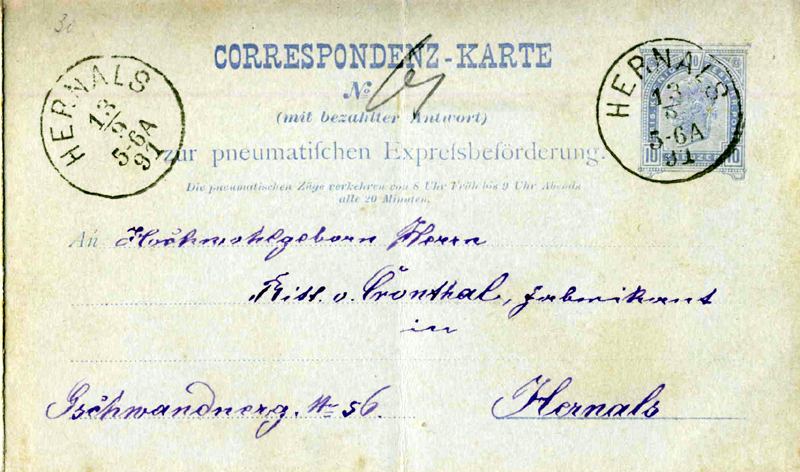 30
CORRESPONDENZ-KARTE
No
(mit bezahlter Antwort)
zur pneumatiſchen Expreſsbeförderung.
Die pneumatischen Züge verkehren von 8 Uhr Früh bis 9 Uhr Abends
alle 20 Minuten.
HERNALS
13/9
5-6A
91
HERNALS
13/9
5-6A
91
10 10
An Hochwohlgeborn Herrn
Ritt. v. Cronthal, Fabrikant
in
Gschwandnerg. No 56. Hernals